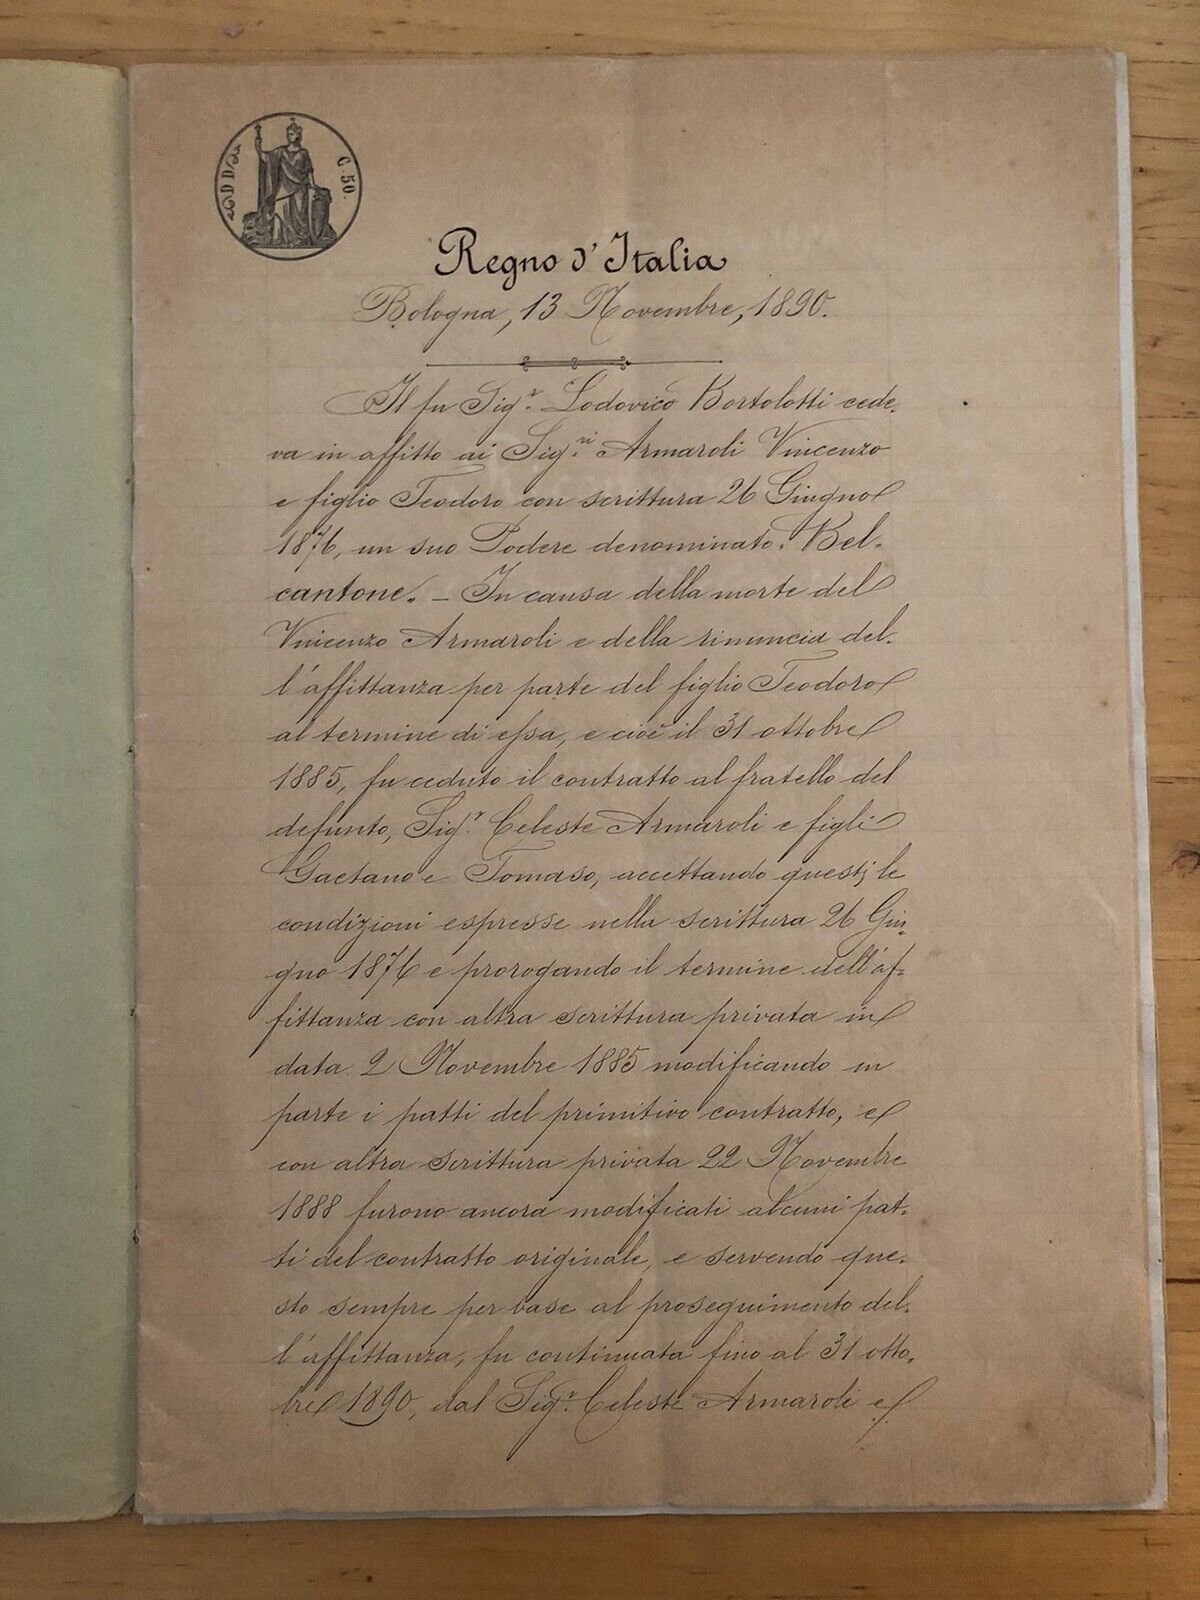 C. 50.
Regno d'Italia
Bologna, 13 Novembre, 1890.
Il fu Sig.r Lodovico Bortolotti cede-
va in affitto ai Sig.ri Armaroli Vincenzo
e figlio Teodoro con scrittura 26 Giugno
1876, un suo Podere denominato: Bel-
cantone. – In causa della morte del
Vincenzo Armaroli e della rinuncia del-
l'affittanza per parte del figlio Teodoro
al termine di essa, e cioè il 31 ottobre
1885, fu ceduto il contratto al fratello del
defunto, Sig.r Celeste Armaroli e figli
Gaetano e Tomaso, accettando questi le
condizioni espresse nella scrittura 26 Giu-
gno 1876 e prorogando il termine dell'af-
fittanza con altra scrittura privata in
data 2 Novembre 1885 modificando in
parte i patti del primitivo contratto, e
con altra scrittura privata 22 Novembre
1888 furono ancora modificati alcuni pat-
ti del contratto originale, e servendo que-
sto sempre per base al proseguimento del-
l'affittanza, fu continuata fino al 31 otto-
bre 1890, dal Sig.r Celeste Armaroli e